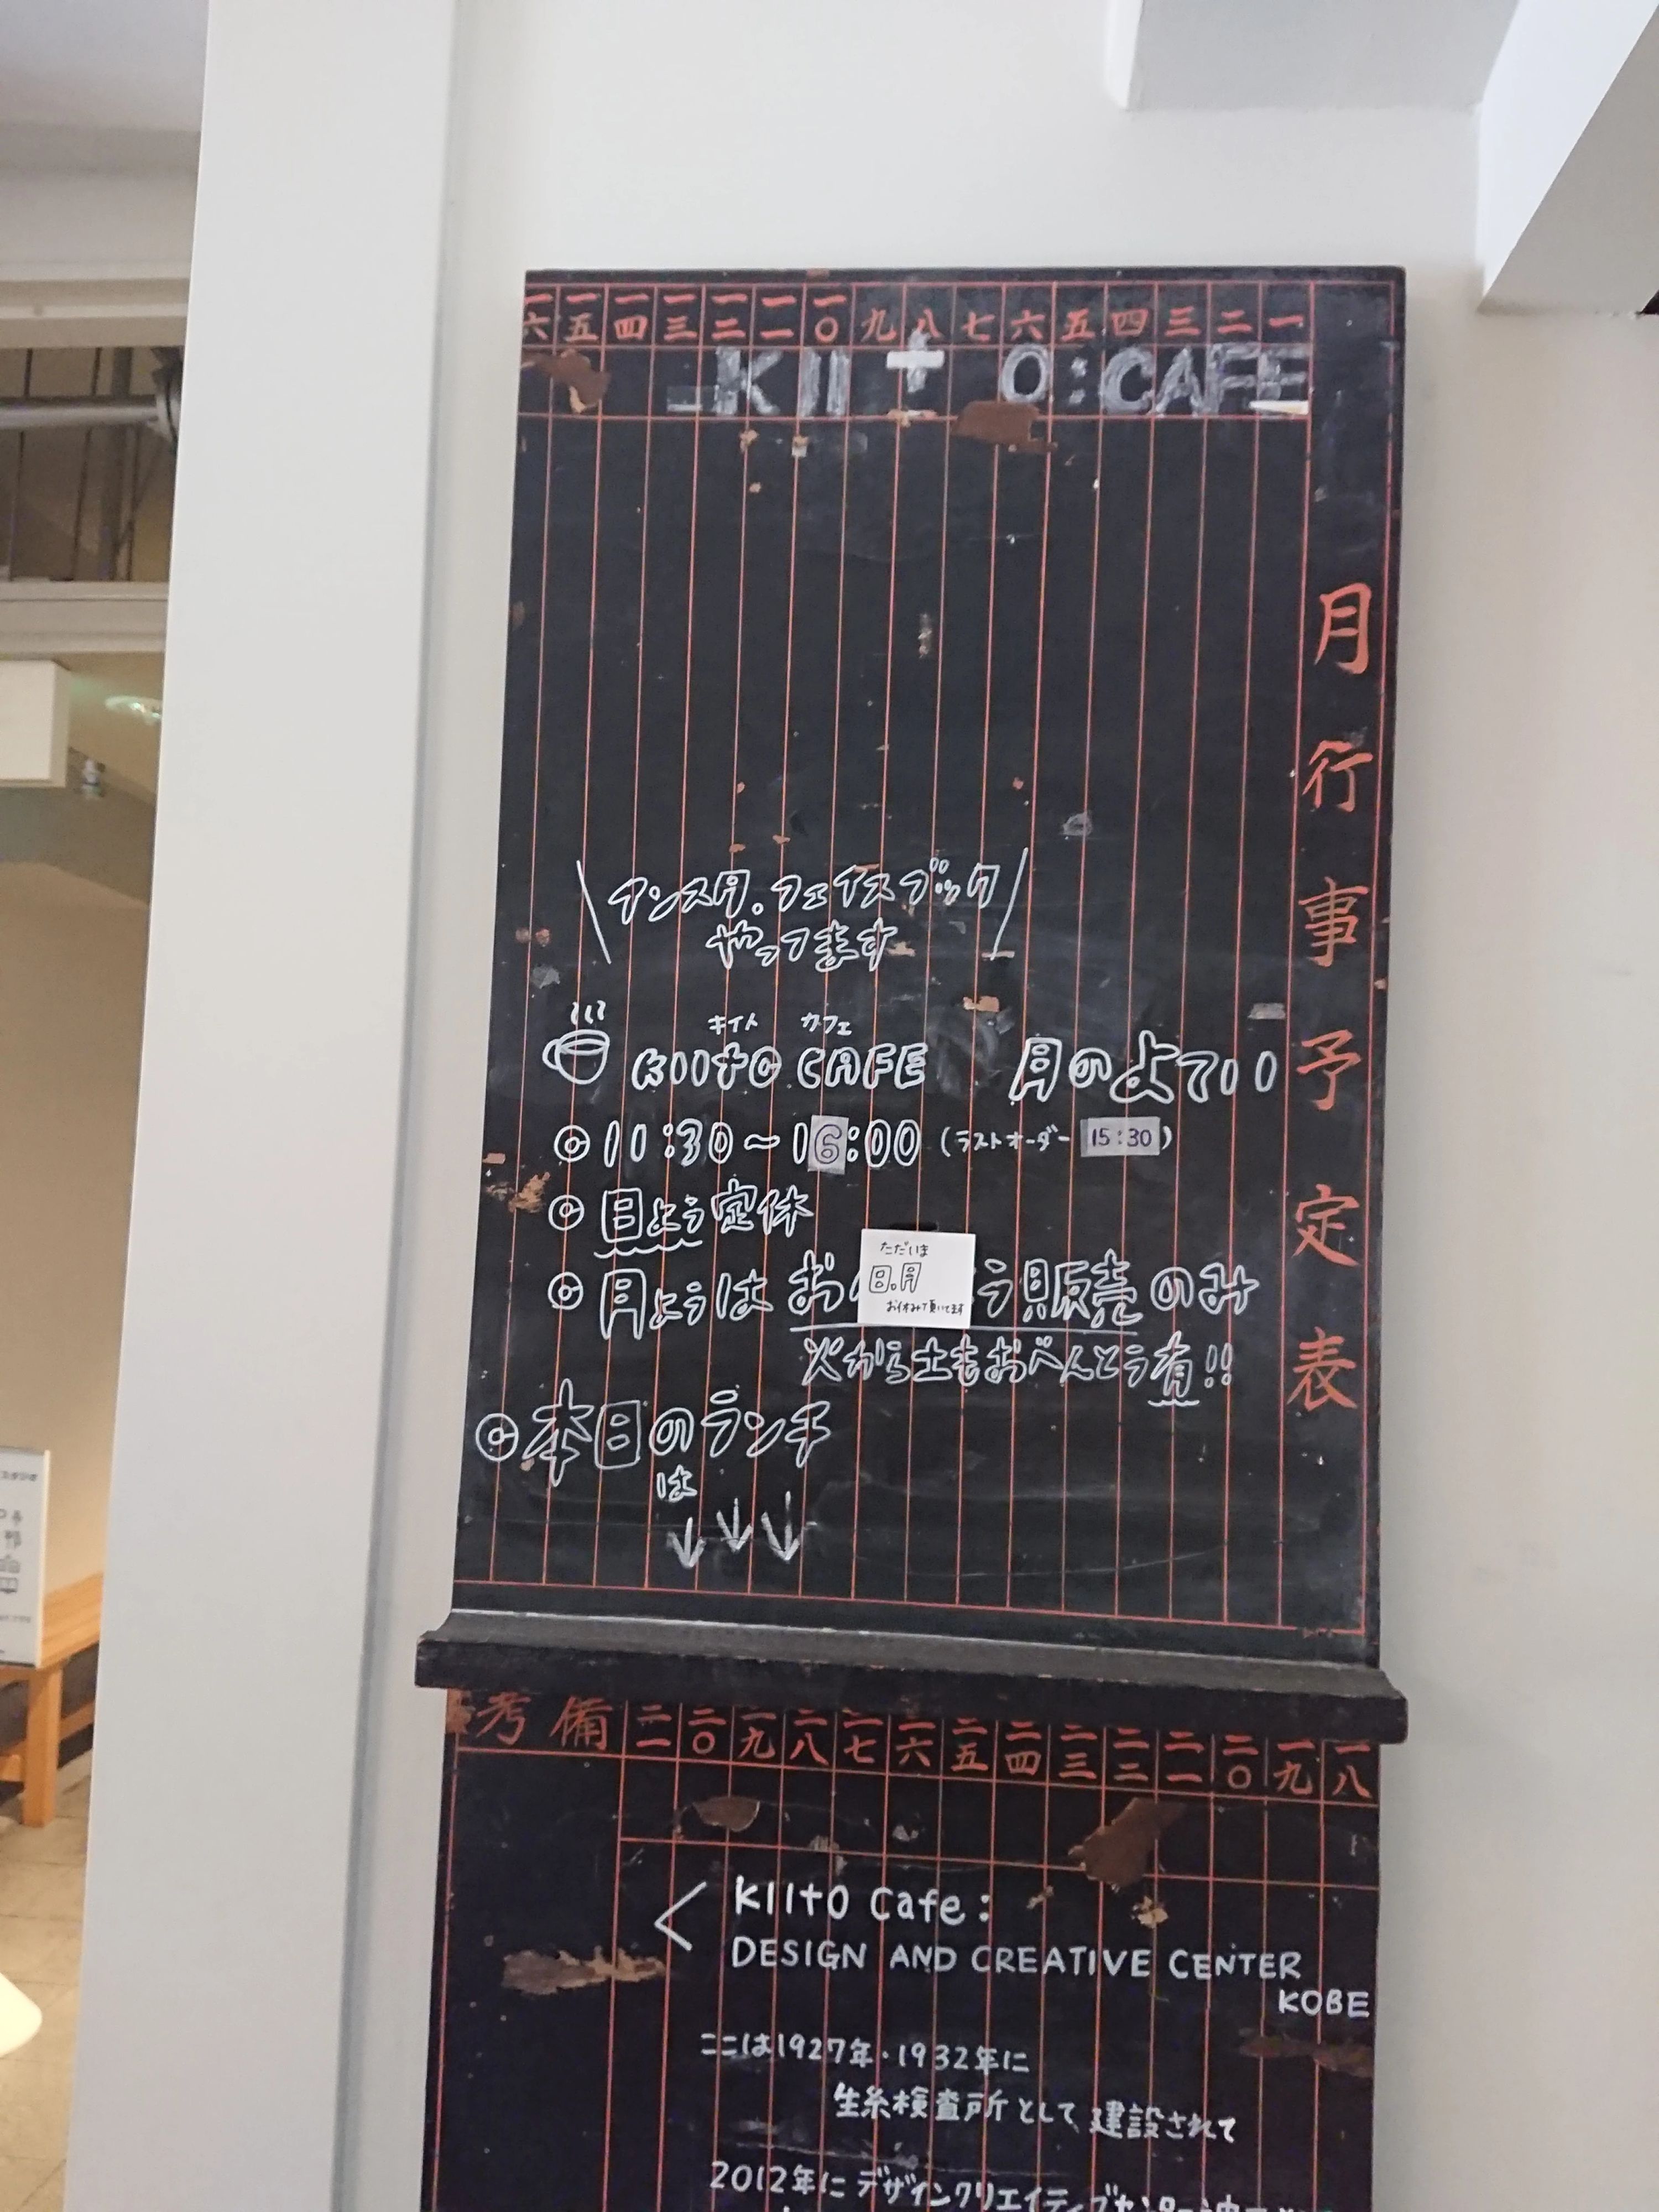 一六 一五 一四 一三 一二 一一 一〇 九 八 七 六 五 四 三 二 一
KIItO:CAFE
月行事予定表
インスタ。フェイスブック
やってます
キイト カフェ
KIITO CAFE 月のよてい
◎11:30~16:00 (ラストオーダー 15:30)
◎日よう定休
ただいま
日.月
お休みで頂いてます
◎月ようは お う販売のみ
火から土もおべんとう有!!
◎本日のランチ
は
考備 二〇 二九 二八 二七 二六 二五 二四 二三 二二 二一 二〇 一九 一八
KIItO Cafe:
DESIGN AND CREATIVE CENTER
KOBE
ここは1927年・1932年に
生糸検査所として建設されて
2012年にデザインクリエイティブセンター